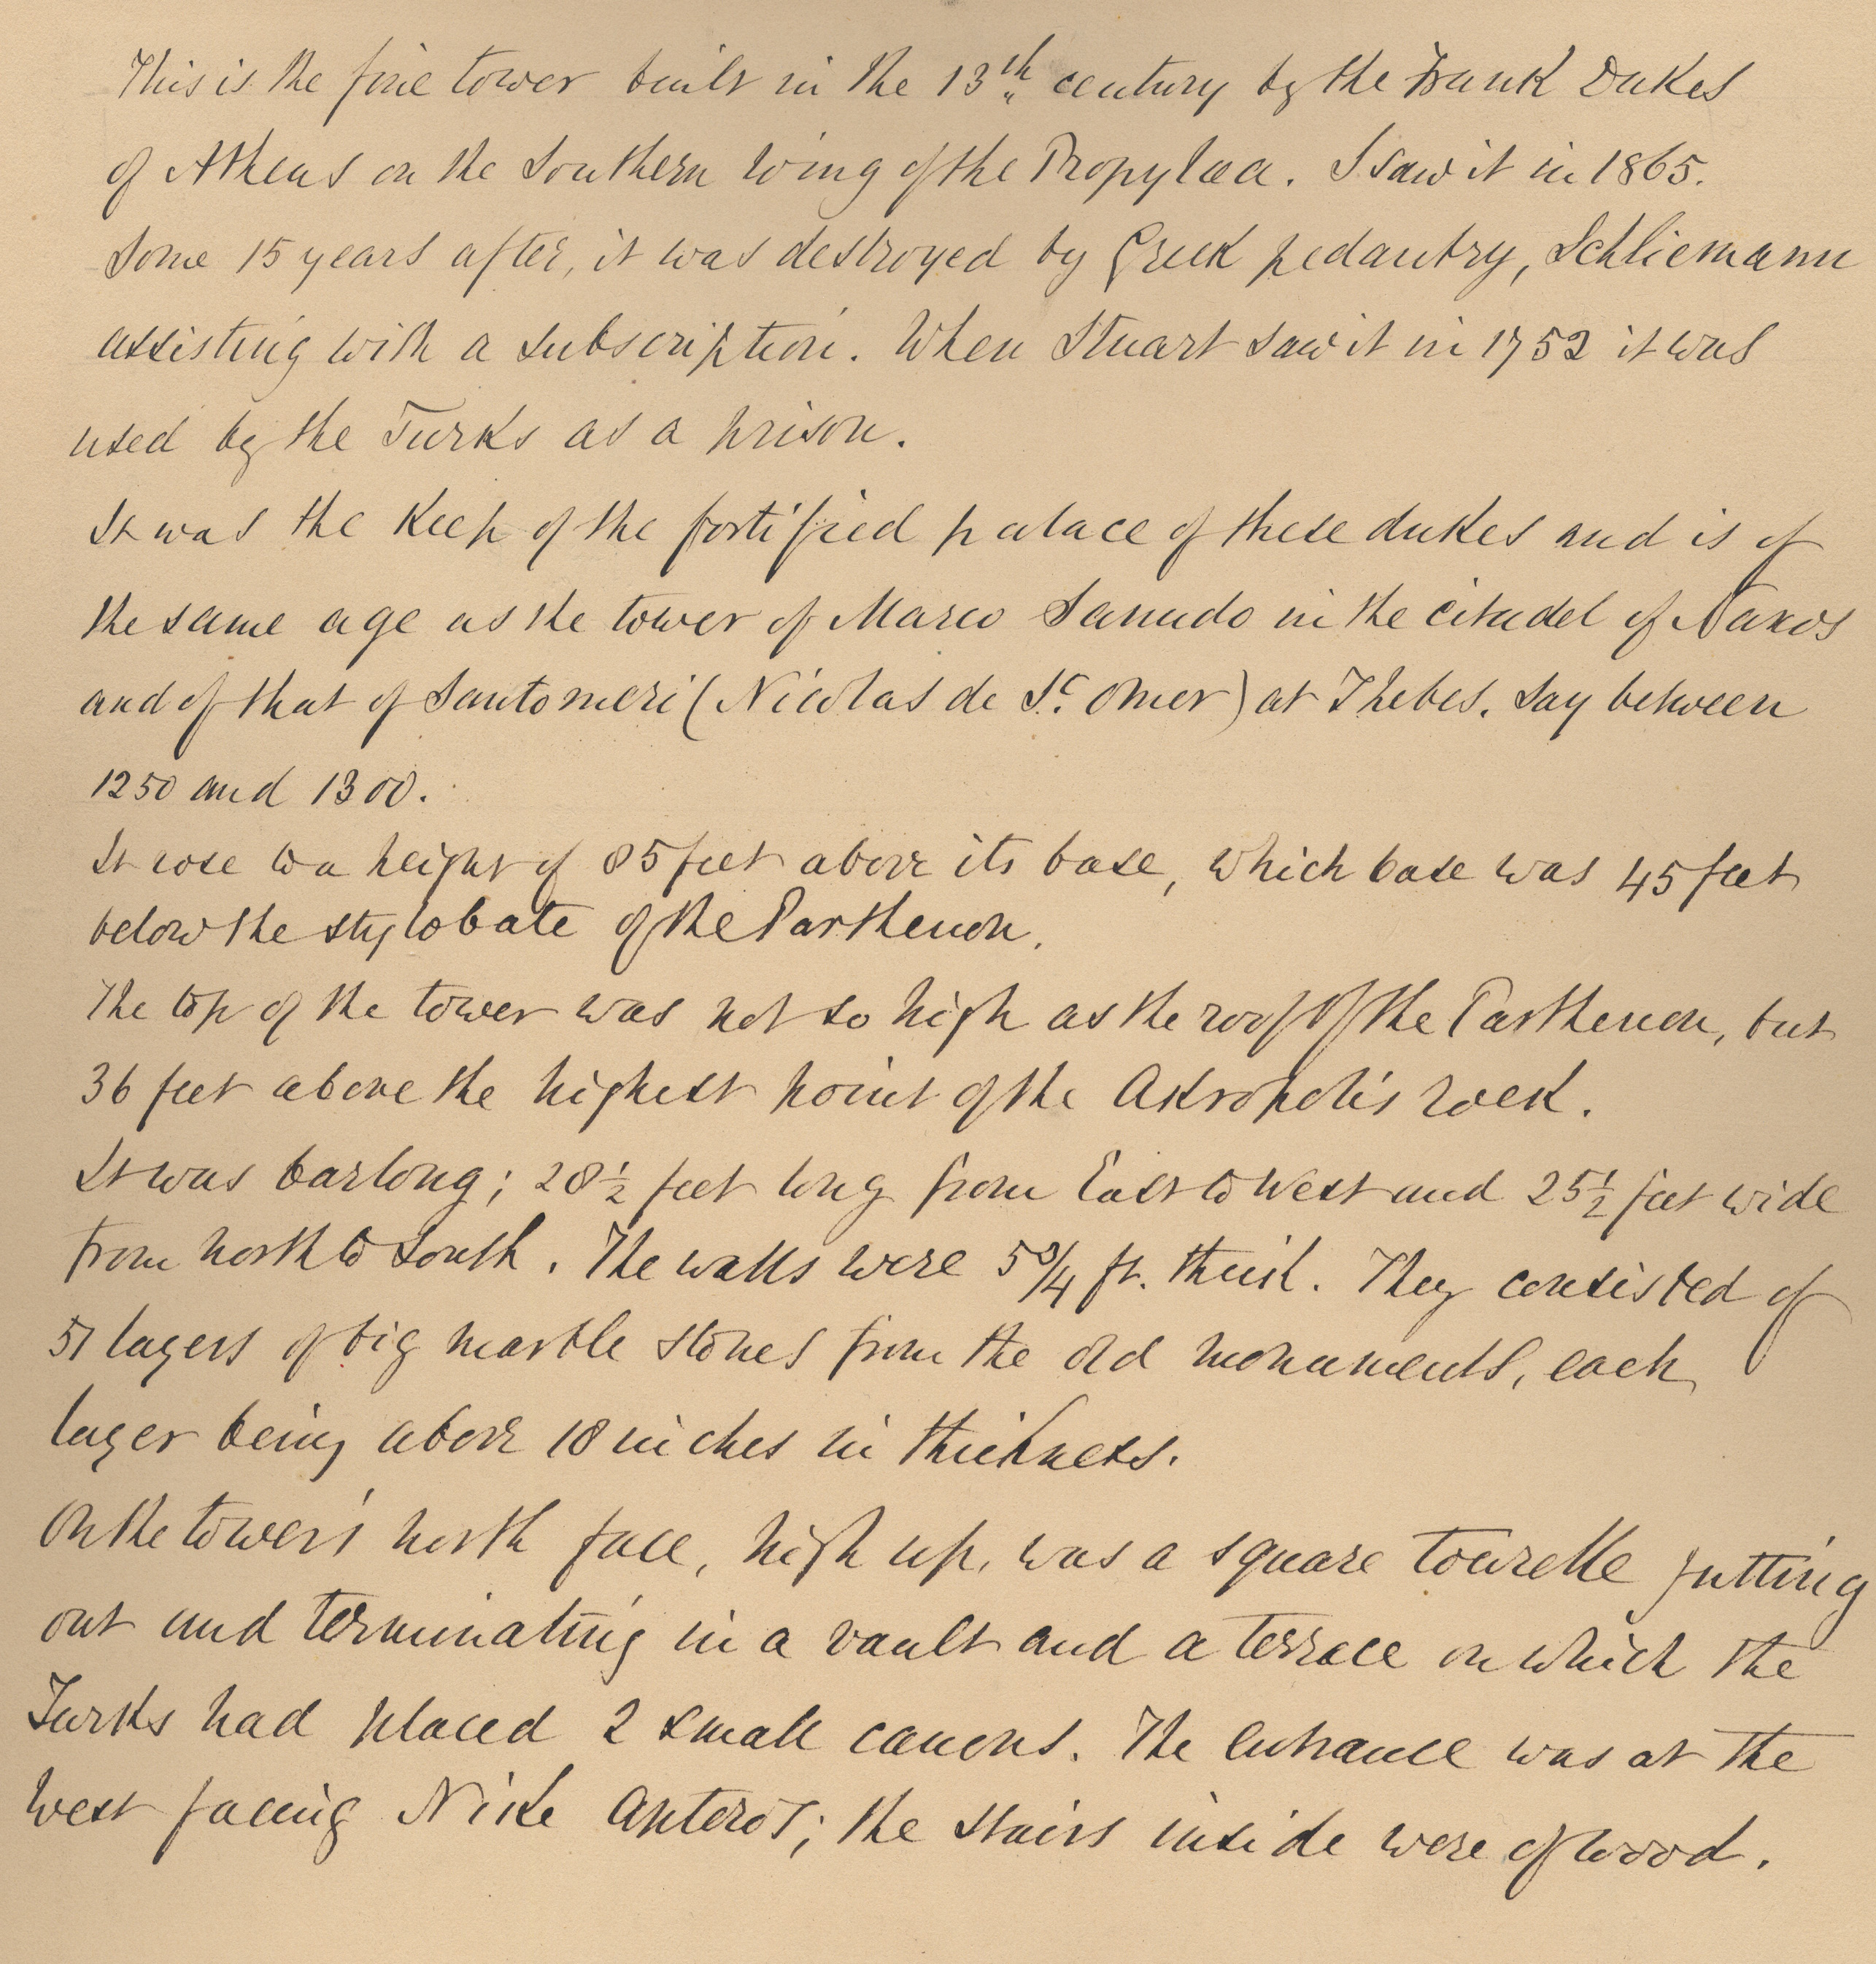 This is the fine tower built in the 13th century by the Frank Dukes
of Athens on the Southern wing of the Propylaea. I saw it in 1865.
Some 15 years after, it was destroyed by Greek pedantry, Schliemann
assisting with a subscription. When Stuart saw it in 1752 it was
used by the Turks as a prison.
It was the Keep of the fortified palace of these dukes and is of
the same age as the tower of Marco Sanudo in the citadel of Naxos
and of that of Santomeri (Nicolas de St. Omer) at Thebes. Say between
1250 and 1300.
It rose to a height of 85 feet above its base, which base was 45 feet
below the stylobate of the Parthenon.
The top of the tower was not so high as the roof of the Parthenon, but
36 feet above the highest point of the Akropolis rock.
It was barlong; 28 1/2 feet long from East to West and 25 1/2 feet wide
from north to south. The walls were 5 3/4 ft. thick. They consisted of
51 layers of big marble stones from the old monuments, each
layer being above 18 inches in thickness.
On the tower's north face, high up, was a square tourelle jutting
out and terminating in a vault and a terrace on which the
Turks had placed 2 small canons. The entrance was at the
West facing Nike Apteros; the stairs inside were of wood.